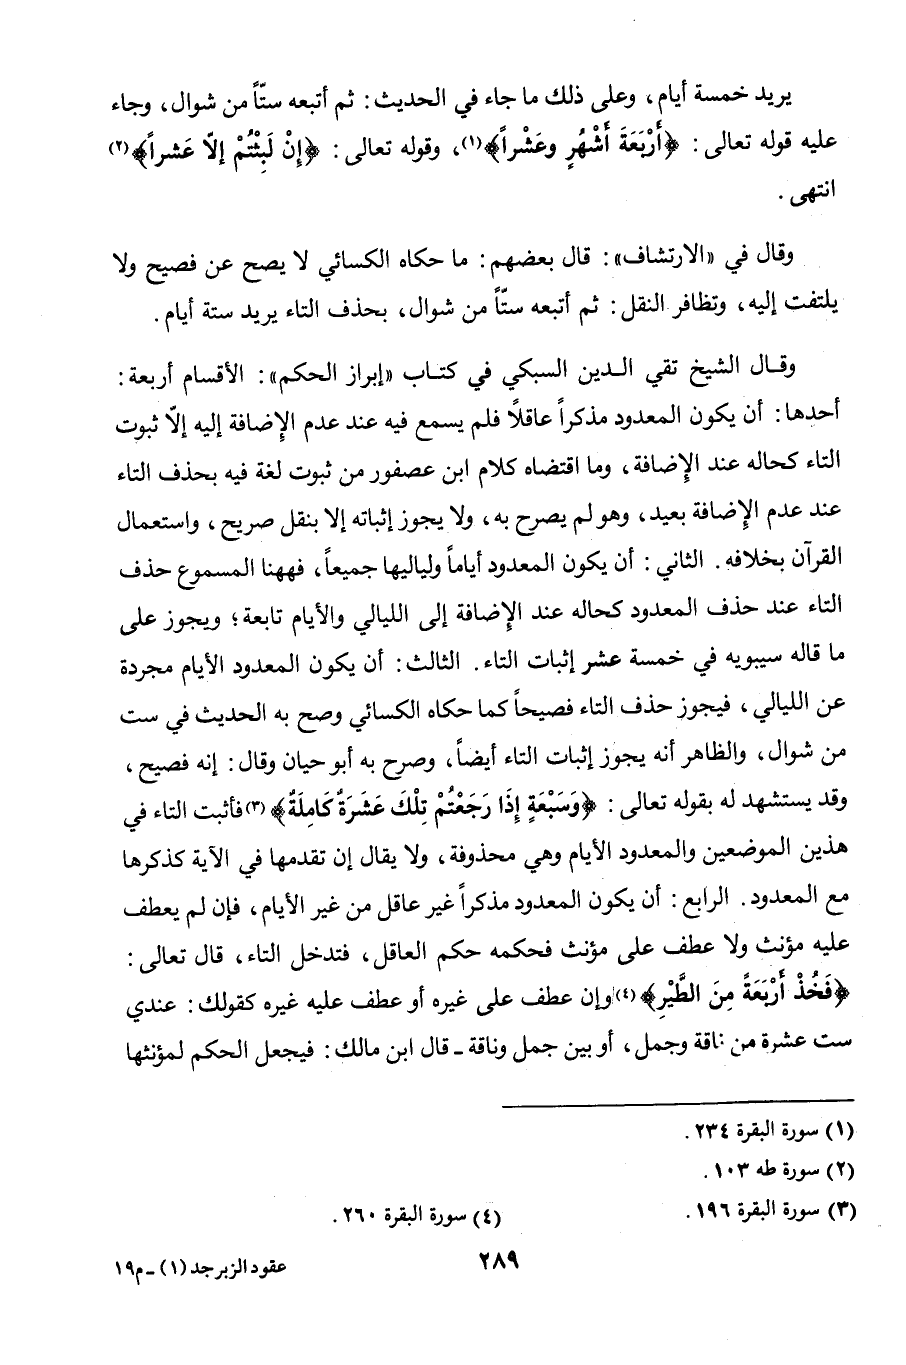 يريد خمسة أيام، وعلى ذلك ما جاء في الحديث: ثم أتبعه ستّاً من شوال، وجاء
عليه قوله تعالى: ﴿أَرْبَعَةَ أَشْهُرٍ وعَشْراً﴾(١)، وقوله تعالى: ﴿إِنْ لَبِثْتُمْ إلّا عَشراً﴾(٢)
انتهى.
وقال في «الارتشاف»: قال بعضهم: ما حكاه الكسائي لا يصح عن فصيح ولا
يلتفت إليه، وتظافر النقل: ثم أتبعه ستّاً من شوال، بحذف التاء يريد ستة أيام.
وقـال الشيخ تقي الـدين السبكي في كتـاب «إبراز الحكم»: الأقسام أربعة:
أحدها: أن يكون المعدود مذكراً عاقلاً فلم يسمع فيه عند عدم الإِضافة إليه إلّا ثبوت
التاء كحاله عند الإِضافة، وما اقتضاه كلام ابن عصفور من ثبوت لغة فيه بحذف التاء
عند عدم الإِضافة بعيد، وهو لم يصرح به، ولا يجوز إثباته إلا بنقل صريح، واستعمال
القرآن بخلافه. الثاني: أن يكون المعدود أياماً ولياليها جميعاً، فههنا المسموع حذف
التاء عند حذف المعدود كحاله عند الإِضافة إلى الليالي والأيام تابعة؛ ويجوز على
ما قاله سيبويه في خمسة عشر إثبات التاء. الثالث: أن يكون المعدود الأيام مجردة
عن الليالي، فيجوز حذف التاء فصيحاً كما حكاه الكسائي وصح به الحديث في ست
من شوال، والظاهر أنه يجوز إثبات التاء أيضاً، وصرح به أبو حيان وقال: إنه فصيح،
وقد يستشهد له بقوله تعالى: ﴿وَسَبْعَةٍ إِذَا رَجَعْتُمْ تِلْكَ عَشَرَةٌ كَامِلَةٌ﴾(٣) فأثبت التاء في
هذين الموضعين والمعدود الأيام وهي محذوفة، ولا يقال إن تقدمها في الآية كذكرها
مع المعدود. الرابع: أن يكون المعدود مذكراً غير عاقل من غير الأيام، فإن لم يعطف
عليه مؤنث ولا عطف على مؤنث فحكمه حكم العاقل، فتدخل التاء، قال تعالى:
﴿فَخُذْ أَرْبَعَةً مِنَ الطَّيْرِ﴾(٤) وإن عطف على غيره أو عطف عليه غيره كقولك: عندي
ست عشرة من ناقة وجمل، أو بين جمل وناقة ـ قال ابن مالك: فيجعل الحكم لمؤنثها
(١) سورة البقرة ٢٣٤.
(٢) سورة طه ١٠٣.
(٣) سورة البقرة ١٩٦. (٤) سورة البقرة ٢٦٠.
٢٨٩ عقود الزبرجد (١) ـ م١٩